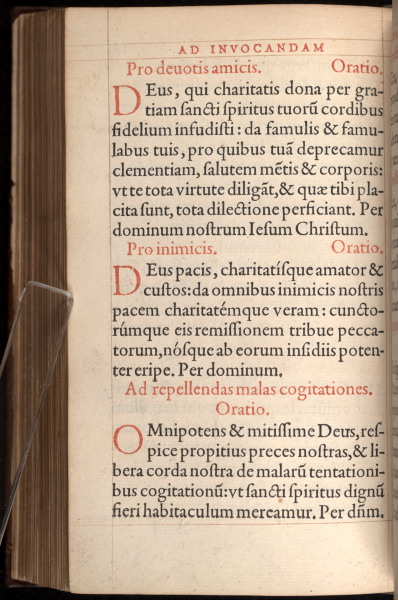 AD INVOCANDAM
Pro deuotis amicis. Oratio.
DEus, qui charitatis dona per gra-
tiam ſancti ſpiritus tuorū cordibus
fidelium infudiſti : da famulis & famu-
labus tuis, pro quibus tuā deprecamur
clementiam, ſalutem mētis & corporis:
vt te tota virtute diligāt, & quæ tibi pla-
cita ſunt, tota dilectione perficiant. Per
dominum noſtrum Ieſum Chriſtum.
Pro inimicis. Oratio.
DEus pacis, charitatíſque amator &
cuſtos: da omnibus inimicis noſtris
pacem charitatémque veram : cuncto-
rúmque eis remiſſionem tribue pecca-
torum, nóſque ab eorum inſidiis poten-
ter eripe. Per dominum.
Ad repellendas malas cogitationes.
Oratio.
OMnipotens & mitiſſime Deus, reſ-
pice propitius preces noſtras, & li-
bera corda noſtra de malarū tentationi-
bus cogitationū: vt ſancti ſpiritus dignū
fieri habitaculum mereamur. Per dn̄m.